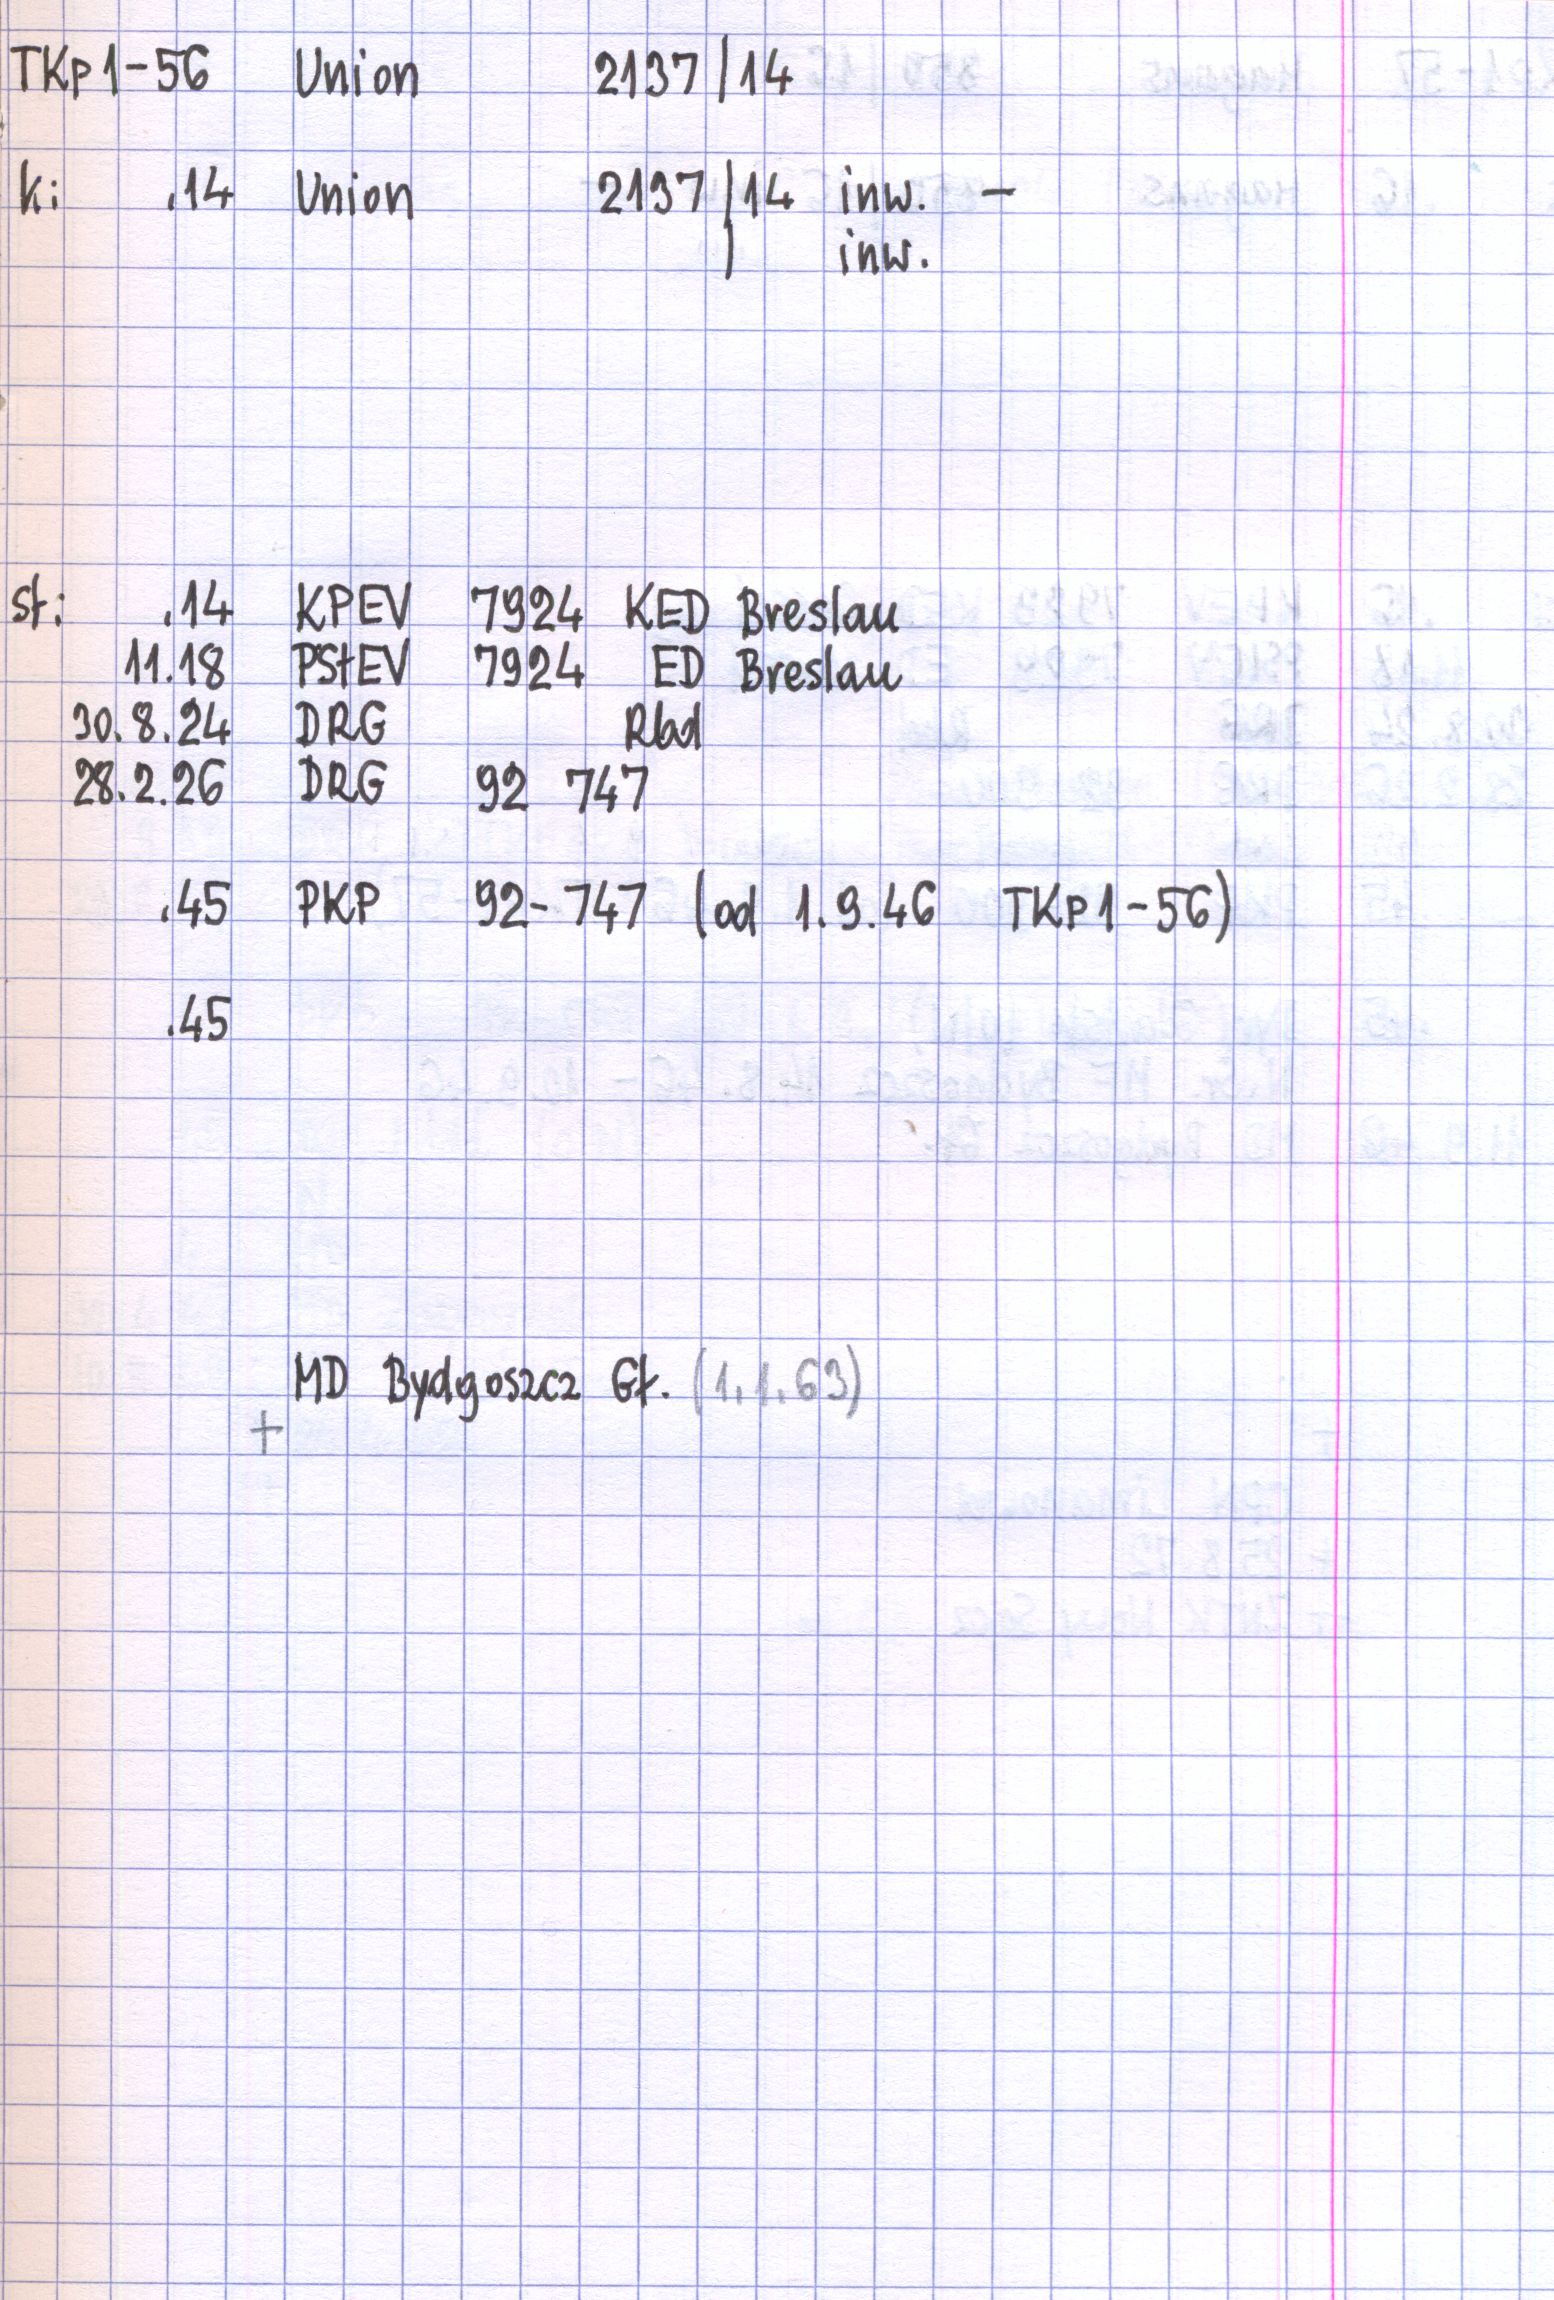 TKp1-56 Union 2137/14
k: .14 Union 2137/14 inw. -
/ inw.
st: .14 KPEV 7924 KED Breslau
11.18 PStEV 7924 ED Breslau
30.8.24 DRG Rbd
28.2.26 DRG 92 747
.45 PKP 92-747 (od 1.9.46 TKp1-56)
.45
MD Bydgoszcz Gł. (1.1.63)
+